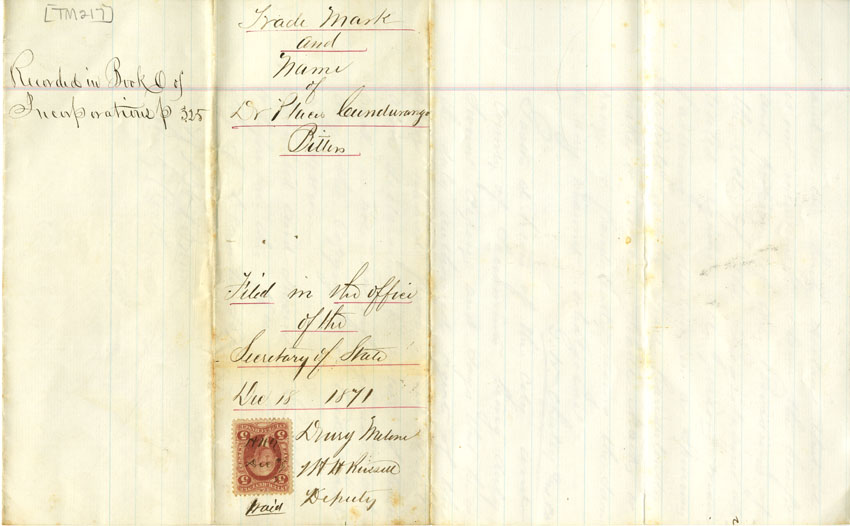 [TM217]
Recorded in Book D of
Incorporations p 325
Trade Mark
and
Name
of
Dr Places Cundurango
Bitters
Filed in the office
of the
Secretary of State
Dec 18 1871
Drury Melone
W H Russell
Deputy
Paid
5 5